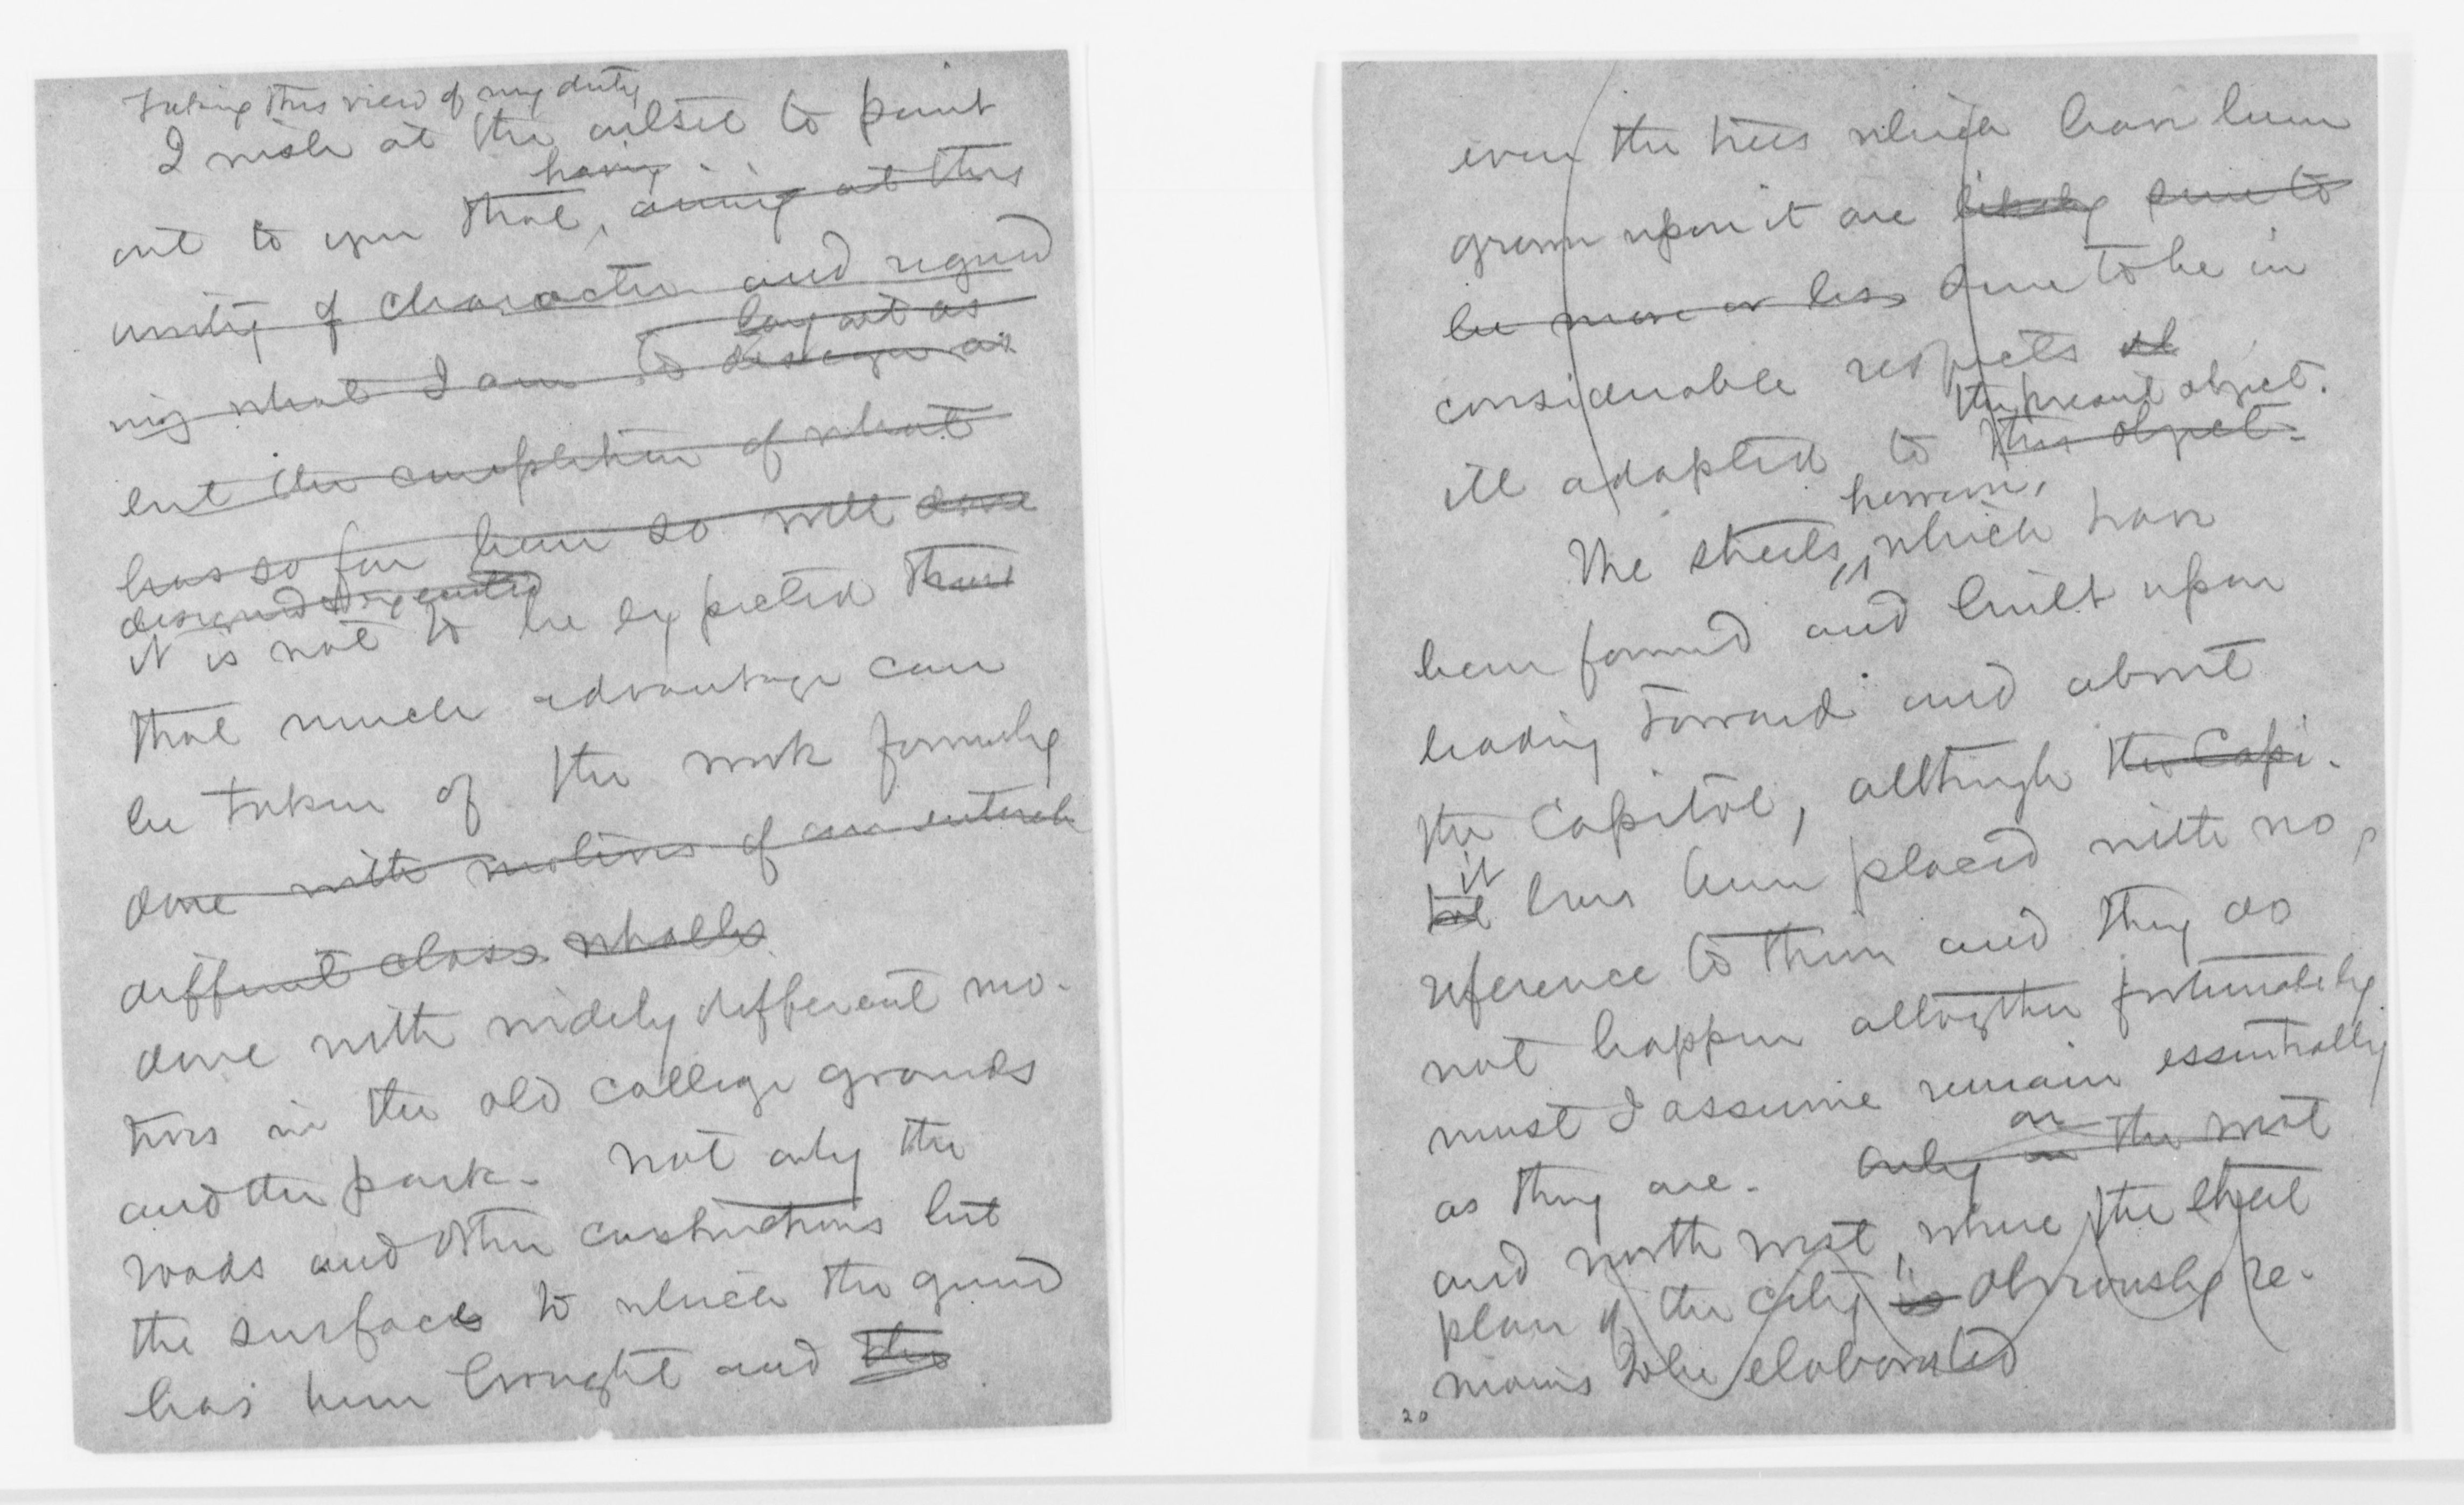 Taking this view of my duty
I wish at the outset to point
having
out to you that, aiming at this
unity of character and regard
lay out as
ing what I am to design as
but the completion of what
has so far been so well done
designed & executed
it is not to be expected that
that much advantage can
be taken of the work formerly
done with motives of an entirely
different class wholly
done with widely different mo-
tives in the old college grounds
and the park. Not only the
roads and other constructions but
the surfaces to which the ground
has been brought and the
even the trees which have been
grown upon it are likely sure to
be more or less sure to be in
considerable respects
the present object.
ill adapted to this object.
however,
The streets, which have
been formed and built upon
leading toward and about
the Capitol, although the Capi-
it
tol has been placed with no
reference to them and they do
not happen altogether fortunately
must I assume remain essentially
on
as they are. Only in the west
and north west, where the street
plan of the city is obviously re-
mains to be elaborated
20